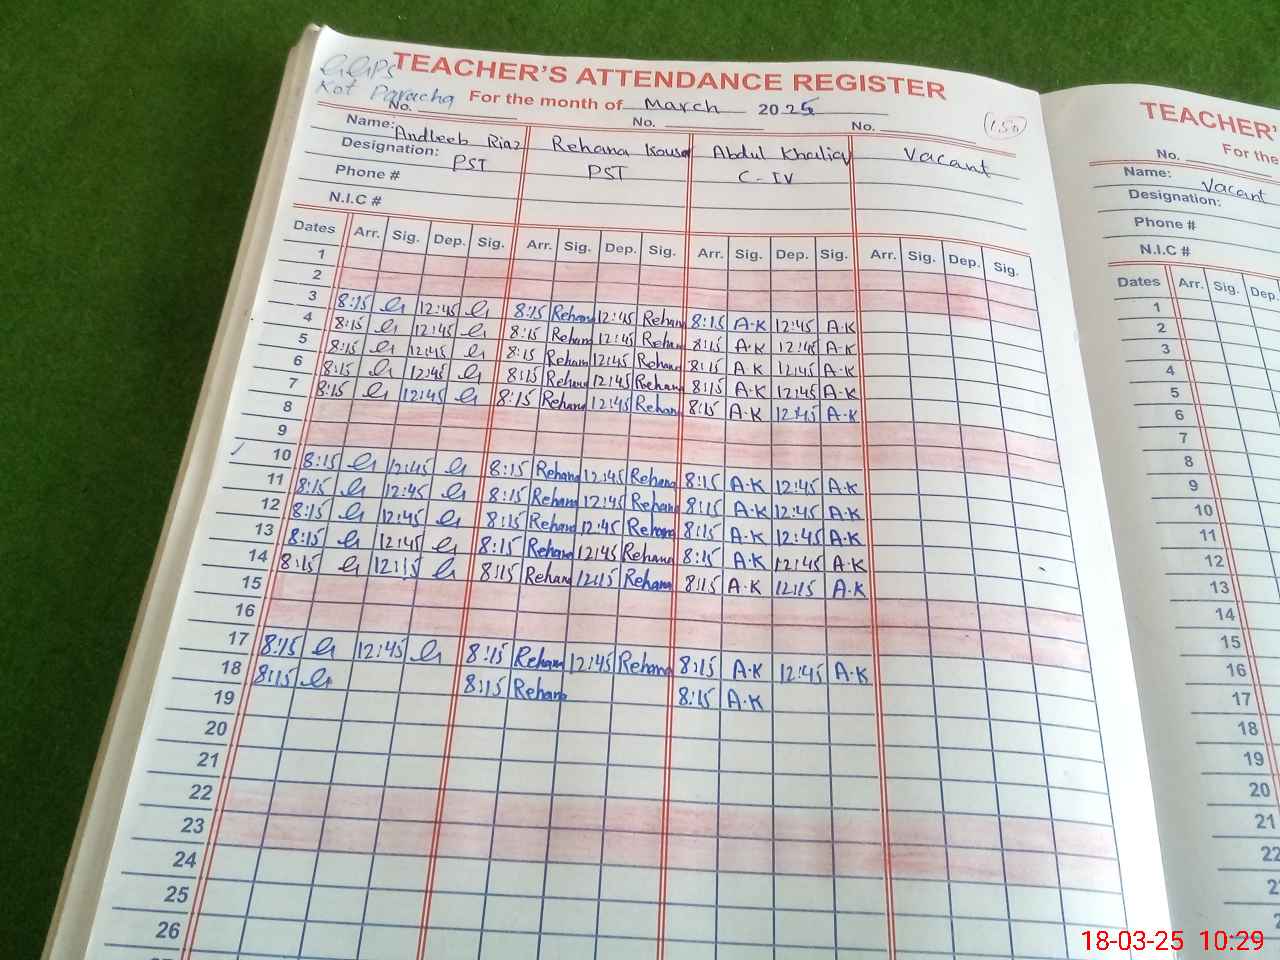 GGPS
Kot Paracha
TEACHER'S ATTENDANCE REGISTER
For the month of March 2025
No. No. No. 150
Name: Andleeb Riaz Rehana Kousar Abdul Khaliq Vacant
Designation: PST PST C-IV
Phone #
N.I.C #
Dates Arr. Sig. Dep. Sig. Arr. Sig. Dep. Sig. Arr. Sig. Dep. Sig. Arr. Sig. Dep. Sig.
1
2
3 8:15 12:45 8:15 Rehana 12:45 Rehana 8:15 A.K 12:45 A.K
4 8:15 12:45 8:15 Rehana 12:45 Rehana 8:15 A.K 12:45 A.K
5 8:15 12:45 8:15 Rehana 12:45 Rehana 8:15 A.K 12:45 A.K
6 8:15 12:45 8:15 Rehana 12:45 Rehana 8:15 A.K 12:45 A.K
7 8:15 12:45 8:15 Rehana 12:45 Rehana 8:15 A.K 12:45 A.K
8
9
10 8:15 12:45 8:15 Rehana 12:45 Rehana 8:15 A.K 12:45 A.K
11 8:15 12:45 8:15 Rehana 12:45 Rehana 8:15 A.K 12:45 A.K
12 8:15 12:45 8:15 Rehana 12:45 Rehana 8:15 A.K 12:45 A.K
13 8:15 12:45 8:15 Rehana 12:45 Rehana 8:15 A.K 12:45 A.K
14 8:15 12:15 8:15 Rehana 12:15 Rehana 8:15 A.K 12:15 A.K
15
16
17 8:15 12:45 8:15 Rehana 12:45 Rehana 8:15 A.K 12:45 A.K
18 8:15 8:15 Rehana 8:15 A.K
19
20
21
22
23
24
25
26
TEACHER'
No. For the
Name: Vacant
Designation:
Phone #
N.I.C #
Dates Arr. Sig. Dep.
1
2
3
4
5
6
7
8
9
10
11
12
13
14
15
16
17
18
19
20
21
22
18-03-25 10:29